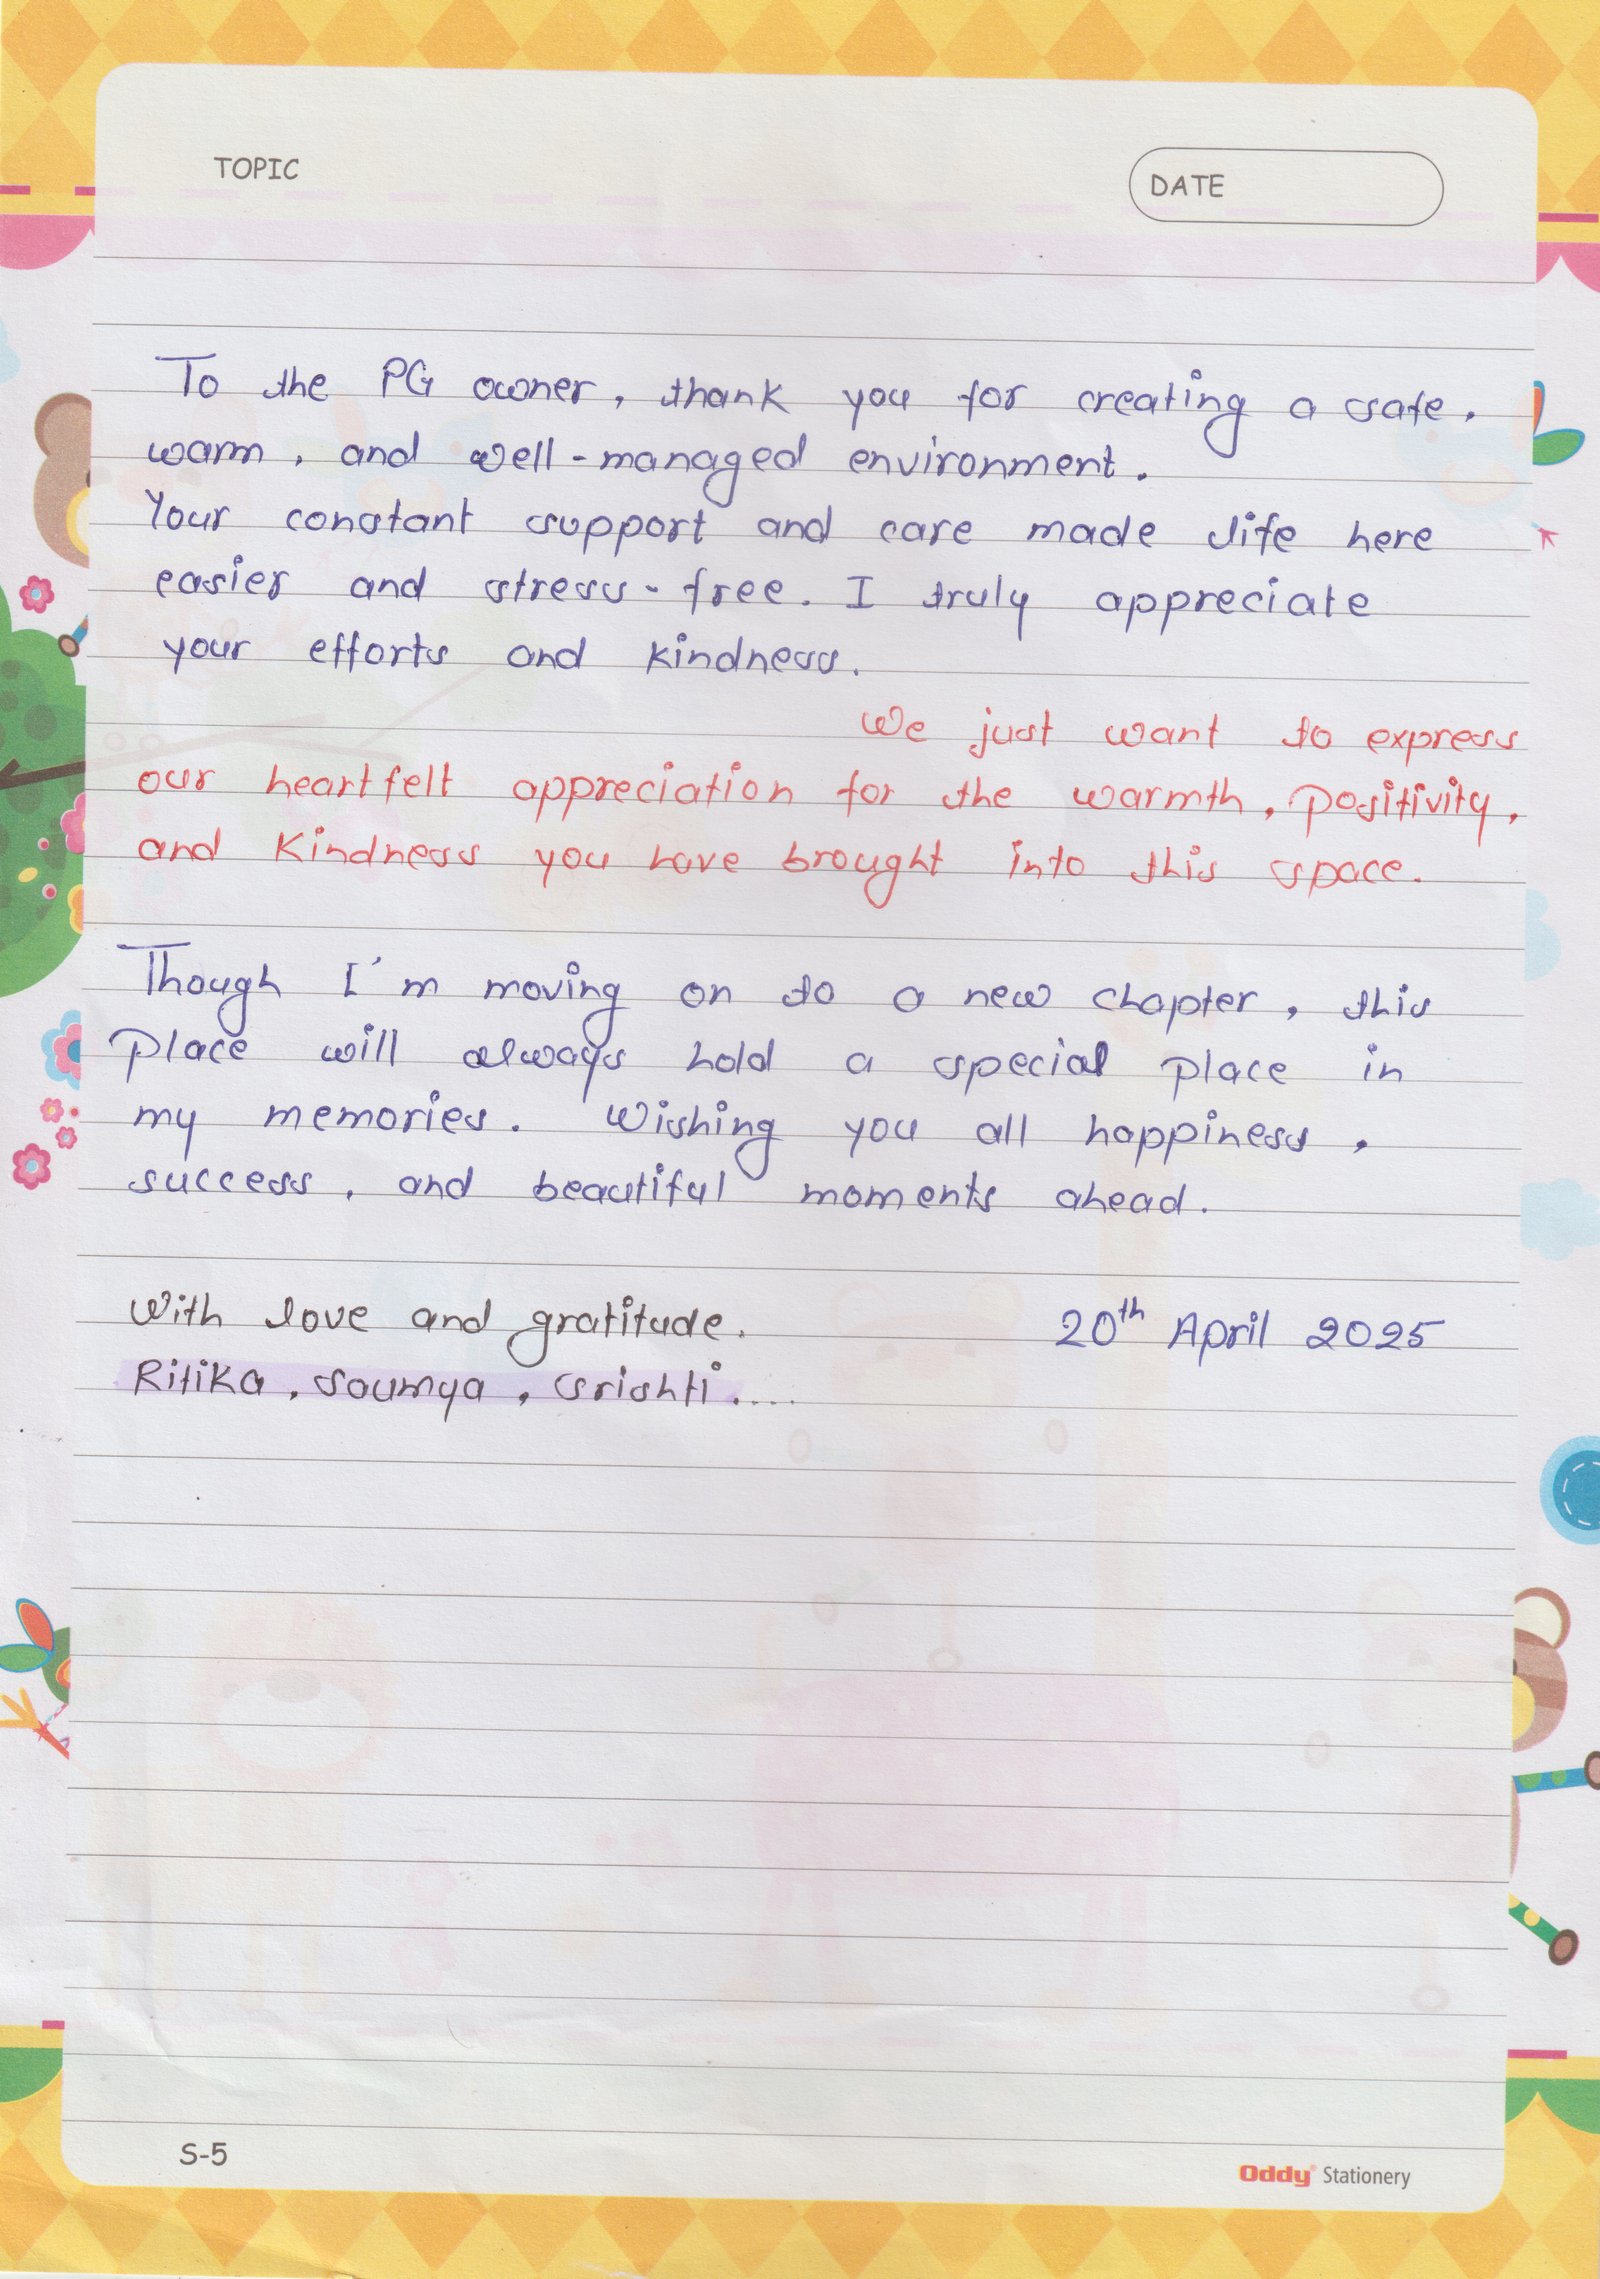 TOPIC
DATE
To the PG owner, thank you for creating a safe,
warm, and well-managed environment.
Your constant support and care made life here
easier and stress-free. I truly appreciate
your efforts and kindness.
We just want to express
our heartfelt appreciation for the warmth, positivity,
and kindness you have brought into this space.
Though I'm moving on to a new chapter, this
place will always hold a special place in
my memories. Wishing you all happiness,
success, and beautiful moments ahead.
With love and gratitude.
20th April 2025
Ritika, Soumya, Srishti.....
S-5
Oddy Stationery